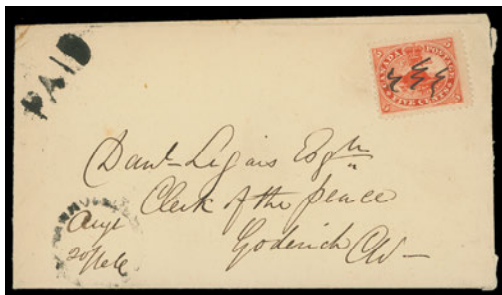 PAID
CANADA POSTAGE
FIVE CENTS
Danl Lizars Esqr
Clerk of the peace
Goderich CW
Augt